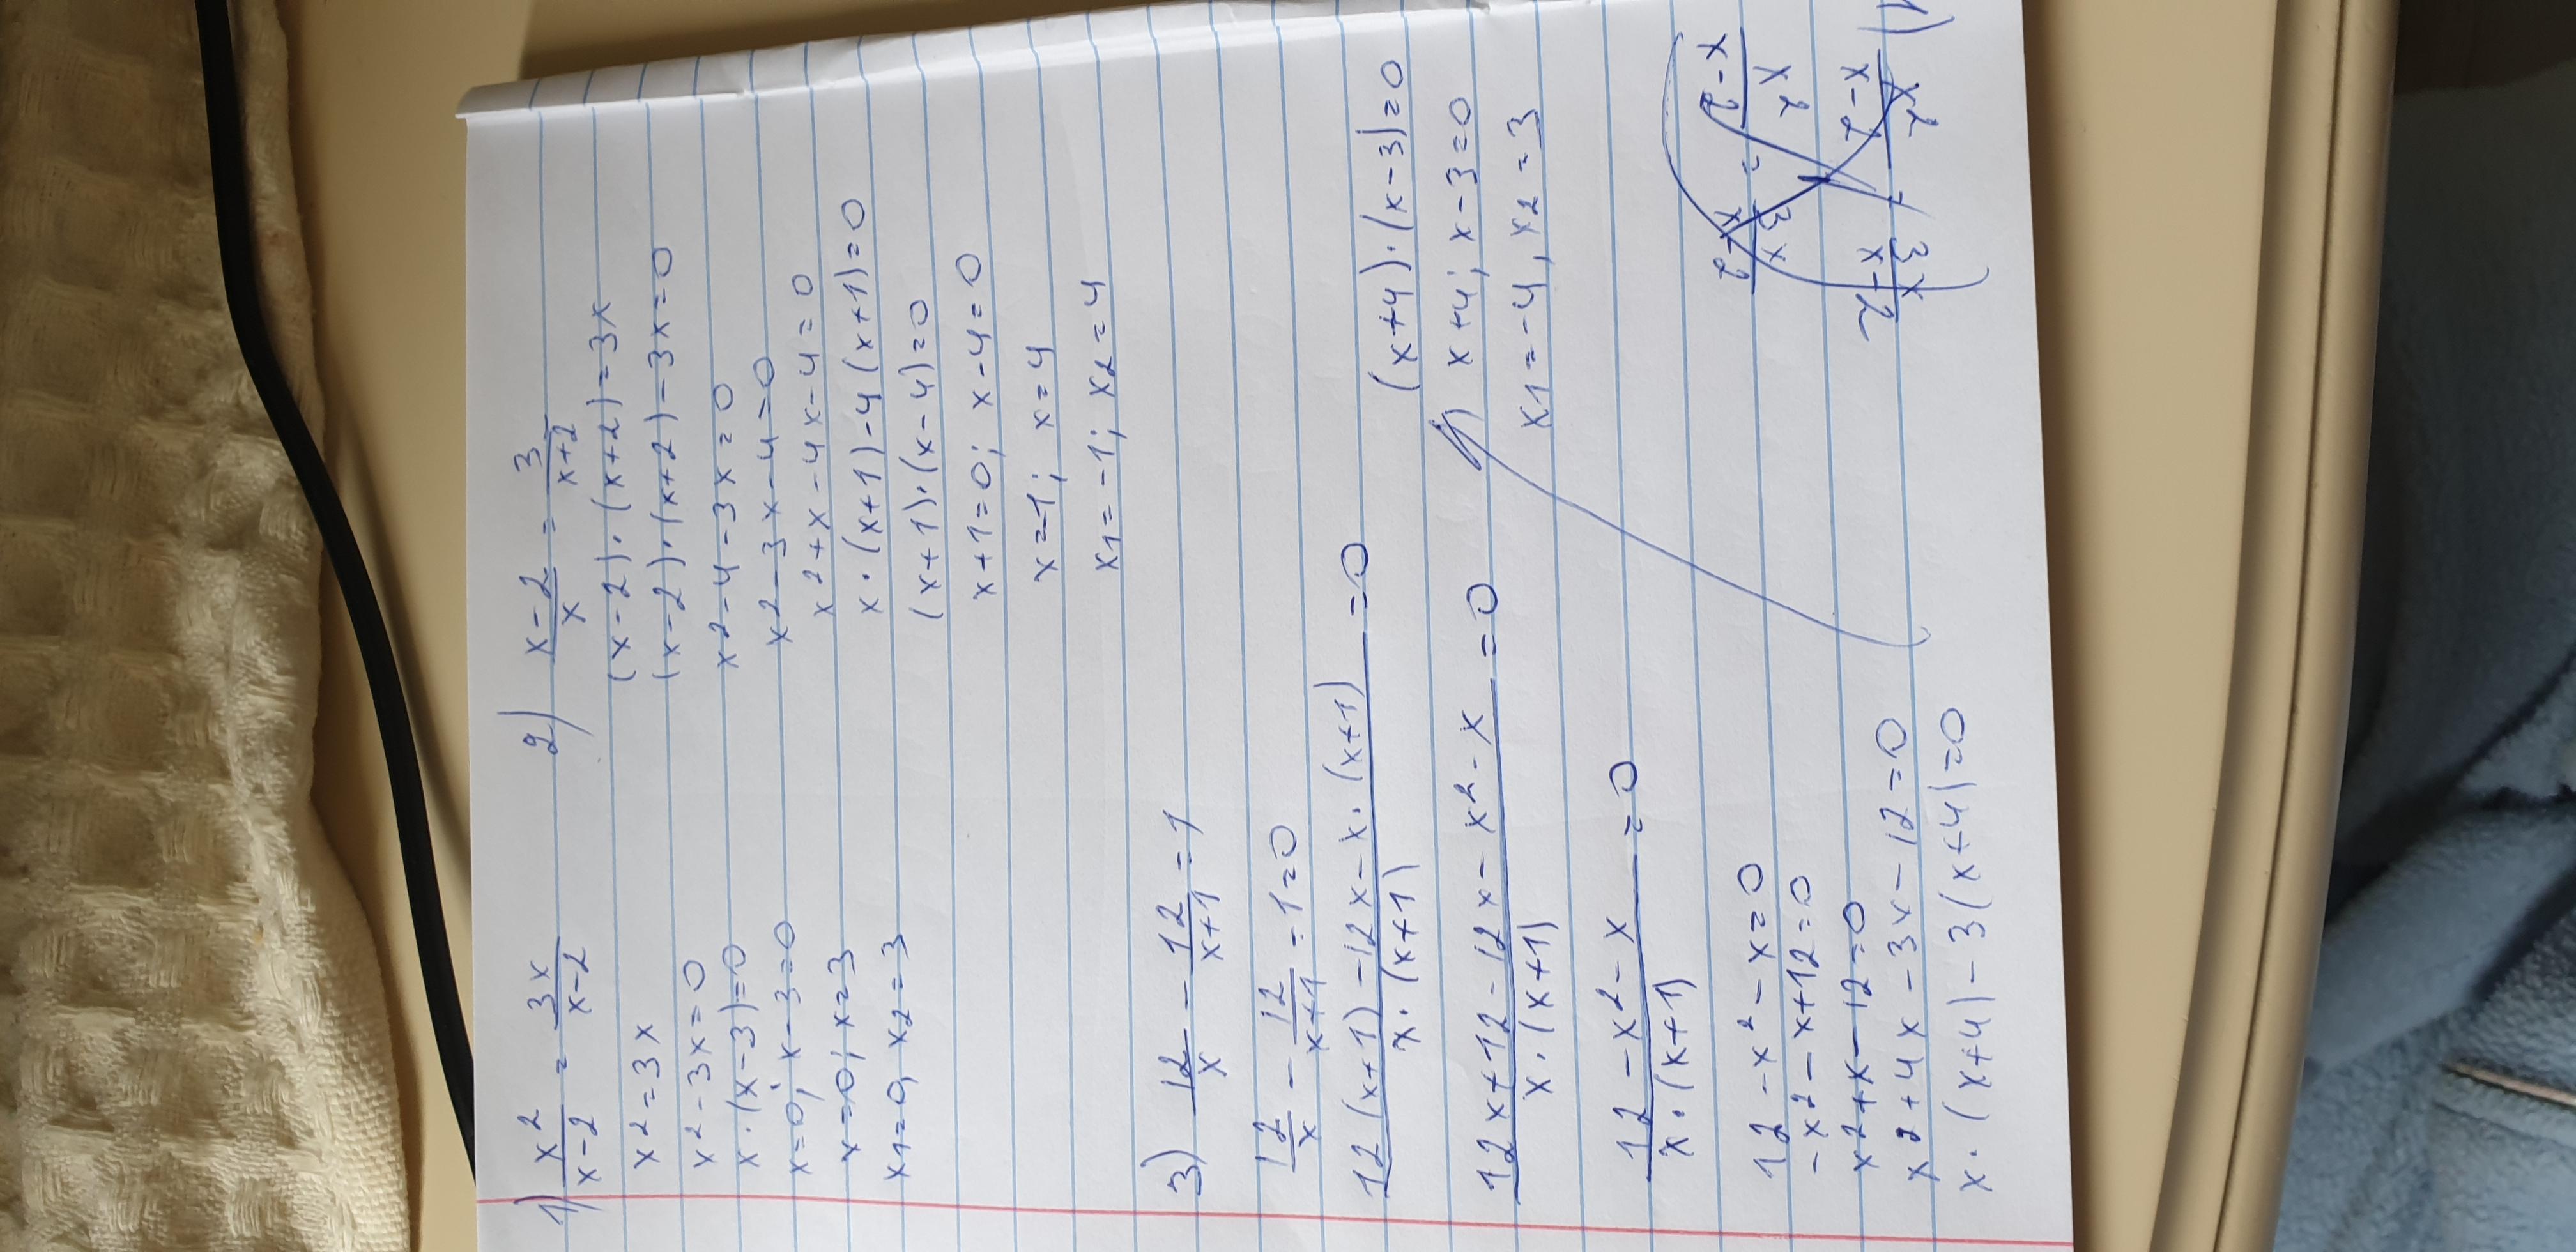 1) x²/x-2 = 3x/x-2
x² = 3x
x² - 3x = 0
x · (x-3) = 0
x = 0; x - 3 = 0
x = 0; x = 3
x1 = 0, x2 = 3
2) x-2/x = 3/x+2
(x-2) · (x+2) = 3x
(x-2) · (x+2) - 3x = 0
x² - 4 - 3x = 0
x² - 3x - 4 = 0
x² + x - 4x - 4 = 0
x · (x+1) - 4(x+1) = 0
(x+1) · (x-4) = 0
x+1 = 0; x-4 = 0
x = -1; x = 4
x1 = -1; x2 = 4
3) 12/x - 12/x+1 = 1
12/x - 12/x+1 - 1 = 0
12(x+1) - 12x - x · (x+1)/x · (x+1) = 0
12x + 12 - 12x - x² - x/x · (x+1) = 0
12 - x² - x/x · (x+1) = 0
12 - x² - x = 0
-x² - x + 12 = 0
x² + x - 12 = 0
x² + 4x - 3x - 12 = 0
x · (x+4) - 3(x+4) = 0
(x+4) · (x-3) = 0
x+4; x-3 = 0
x1 = -4, x2 = 3